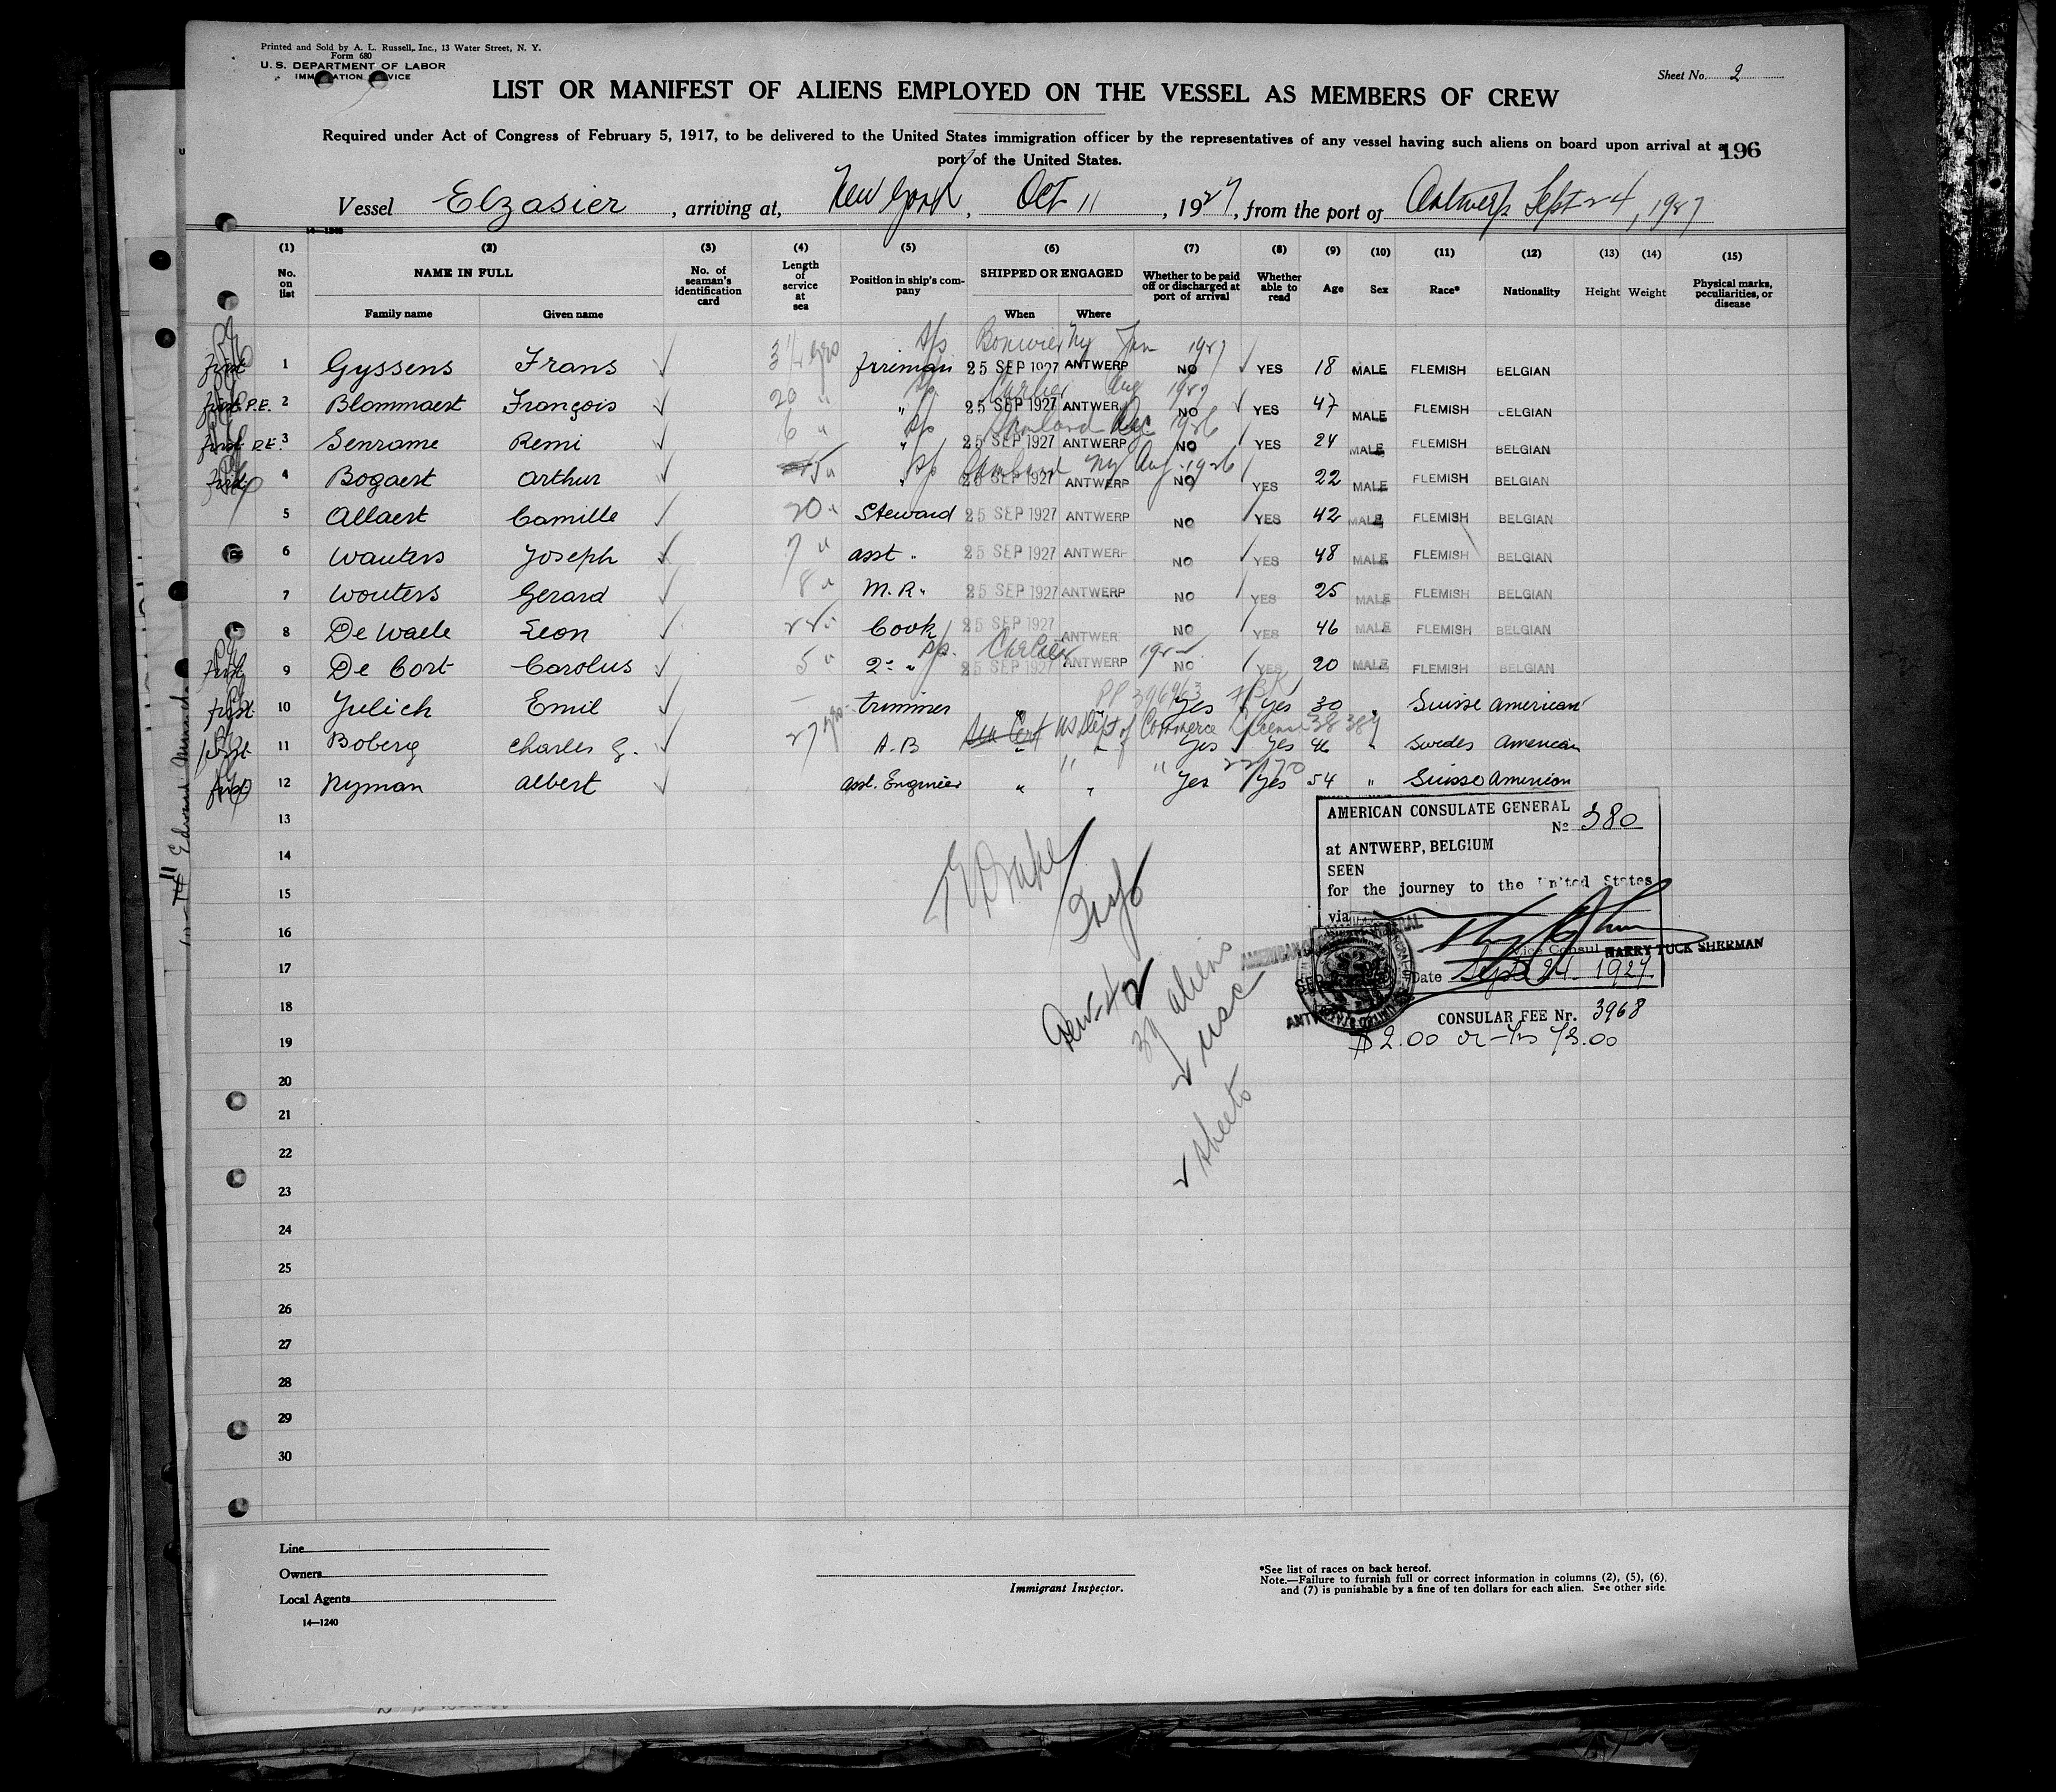 Printed and Sold by A. L. Russell, Inc., 13 Water Street, N. Y.
Form 680
U. S. DEPARTMENT OF LABOR
Sheet No. 2
LIST OR MANIFEST OF ALIENS EMPLOYED ON THE VESSEL AS MEMBERS OF CREW
Required under Act of Congress of February 5, 1917, to be delivered to the United States immigration officer by the representatives of any vessel having such aliens on board upon arrival at a
port of the United States.
196
Vessel Elzasier, arriving at, New York, Oct 11, 1927, from the port of Antwerp Sept 24, 1927
(1) (2) (3) (4) (5) (6) (7) (8) (9) (10) (11) (12) (13) (14) (15)
No. on list NAME IN FULL No. of seaman's identification card Length of service at sea Position in ship's company SHIPPED OR ENGAGED Whether to be paid off or discharged at port of arrival Whether able to read Age Sex Race* Nationality Height Weight Physical marks, peculiarities, or disease
Family name Given name When Where
1 Gyssens Frans fireman 25 SEP 1927 ANTWERP NO YES 18 MALE FLEMISH BELGIAN
2 Blommaert François 20 " " 25 SEP 1927 ANTWER NO YES 47 MALE FLEMISH BELGIAN
3 Senrame Remi 6 " " 25 SEP 1927 ANTWERP NO YES 24 MALE FLEMISH BELGIAN
4 Bogaert Arthur " 25 SEP 1927 ANTWERP NO YES 22 MALE FLEMISH BELGIAN
5 Allaert Camille 20 " Steward 25 SEP 1927 ANTWERP NO YES 42 MALE FLEMISH BELGIAN
6 Wauters Joseph 7 " asst " 25 SEP 1927 ANTWERP NO YES 48 MALE FLEMISH BELGIAN
7 Wouters Gerard 8 " M. R. " 25 SEP 1927 ANTWERP NO YES 25 MALE FLEMISH BELGIAN
8 De Waele Leon Cook 25 SEP 1927 ANTWER NO YES 46 MALE FLEMISH BELGIAN
9 De Cort Carolus 5 " 2e " 25 SEP 1927 ANTWERP NO YES 20 MALE FLEMISH BELGIAN
10 Julich Emil trimmer " " Yes Yes 30 " Suisse American
11 Boberg Charles G. 27 yrs A.B " " Yes Yes 46 " Swedes American
12 Nyman Albert asst. Engineer " " Yes Yes 54 " Suisse American
13
14
15
16
17
18
19
20
21
22
23
24
25
26
27
28
29
30
AMERICAN CONSULATE GENERAL
No 380
at ANTWERP, BELGIUM
SEEN
for the journey to the United States
via
Vice Consul HARRY TUCK SHERMAN
Date Sept 24 1927
CONSULAR FEE Nr. 3968
$2.00
37 aliens
usc
sheets
Line
Owners
Local Agents
14—1240
Immigrant Inspector.
*See list of races on back hereof.
Note.—Failure to furnish full or correct information in columns (2), (5), (6),
and (7) is punishable by a fine of ten dollars for each alien. See other side